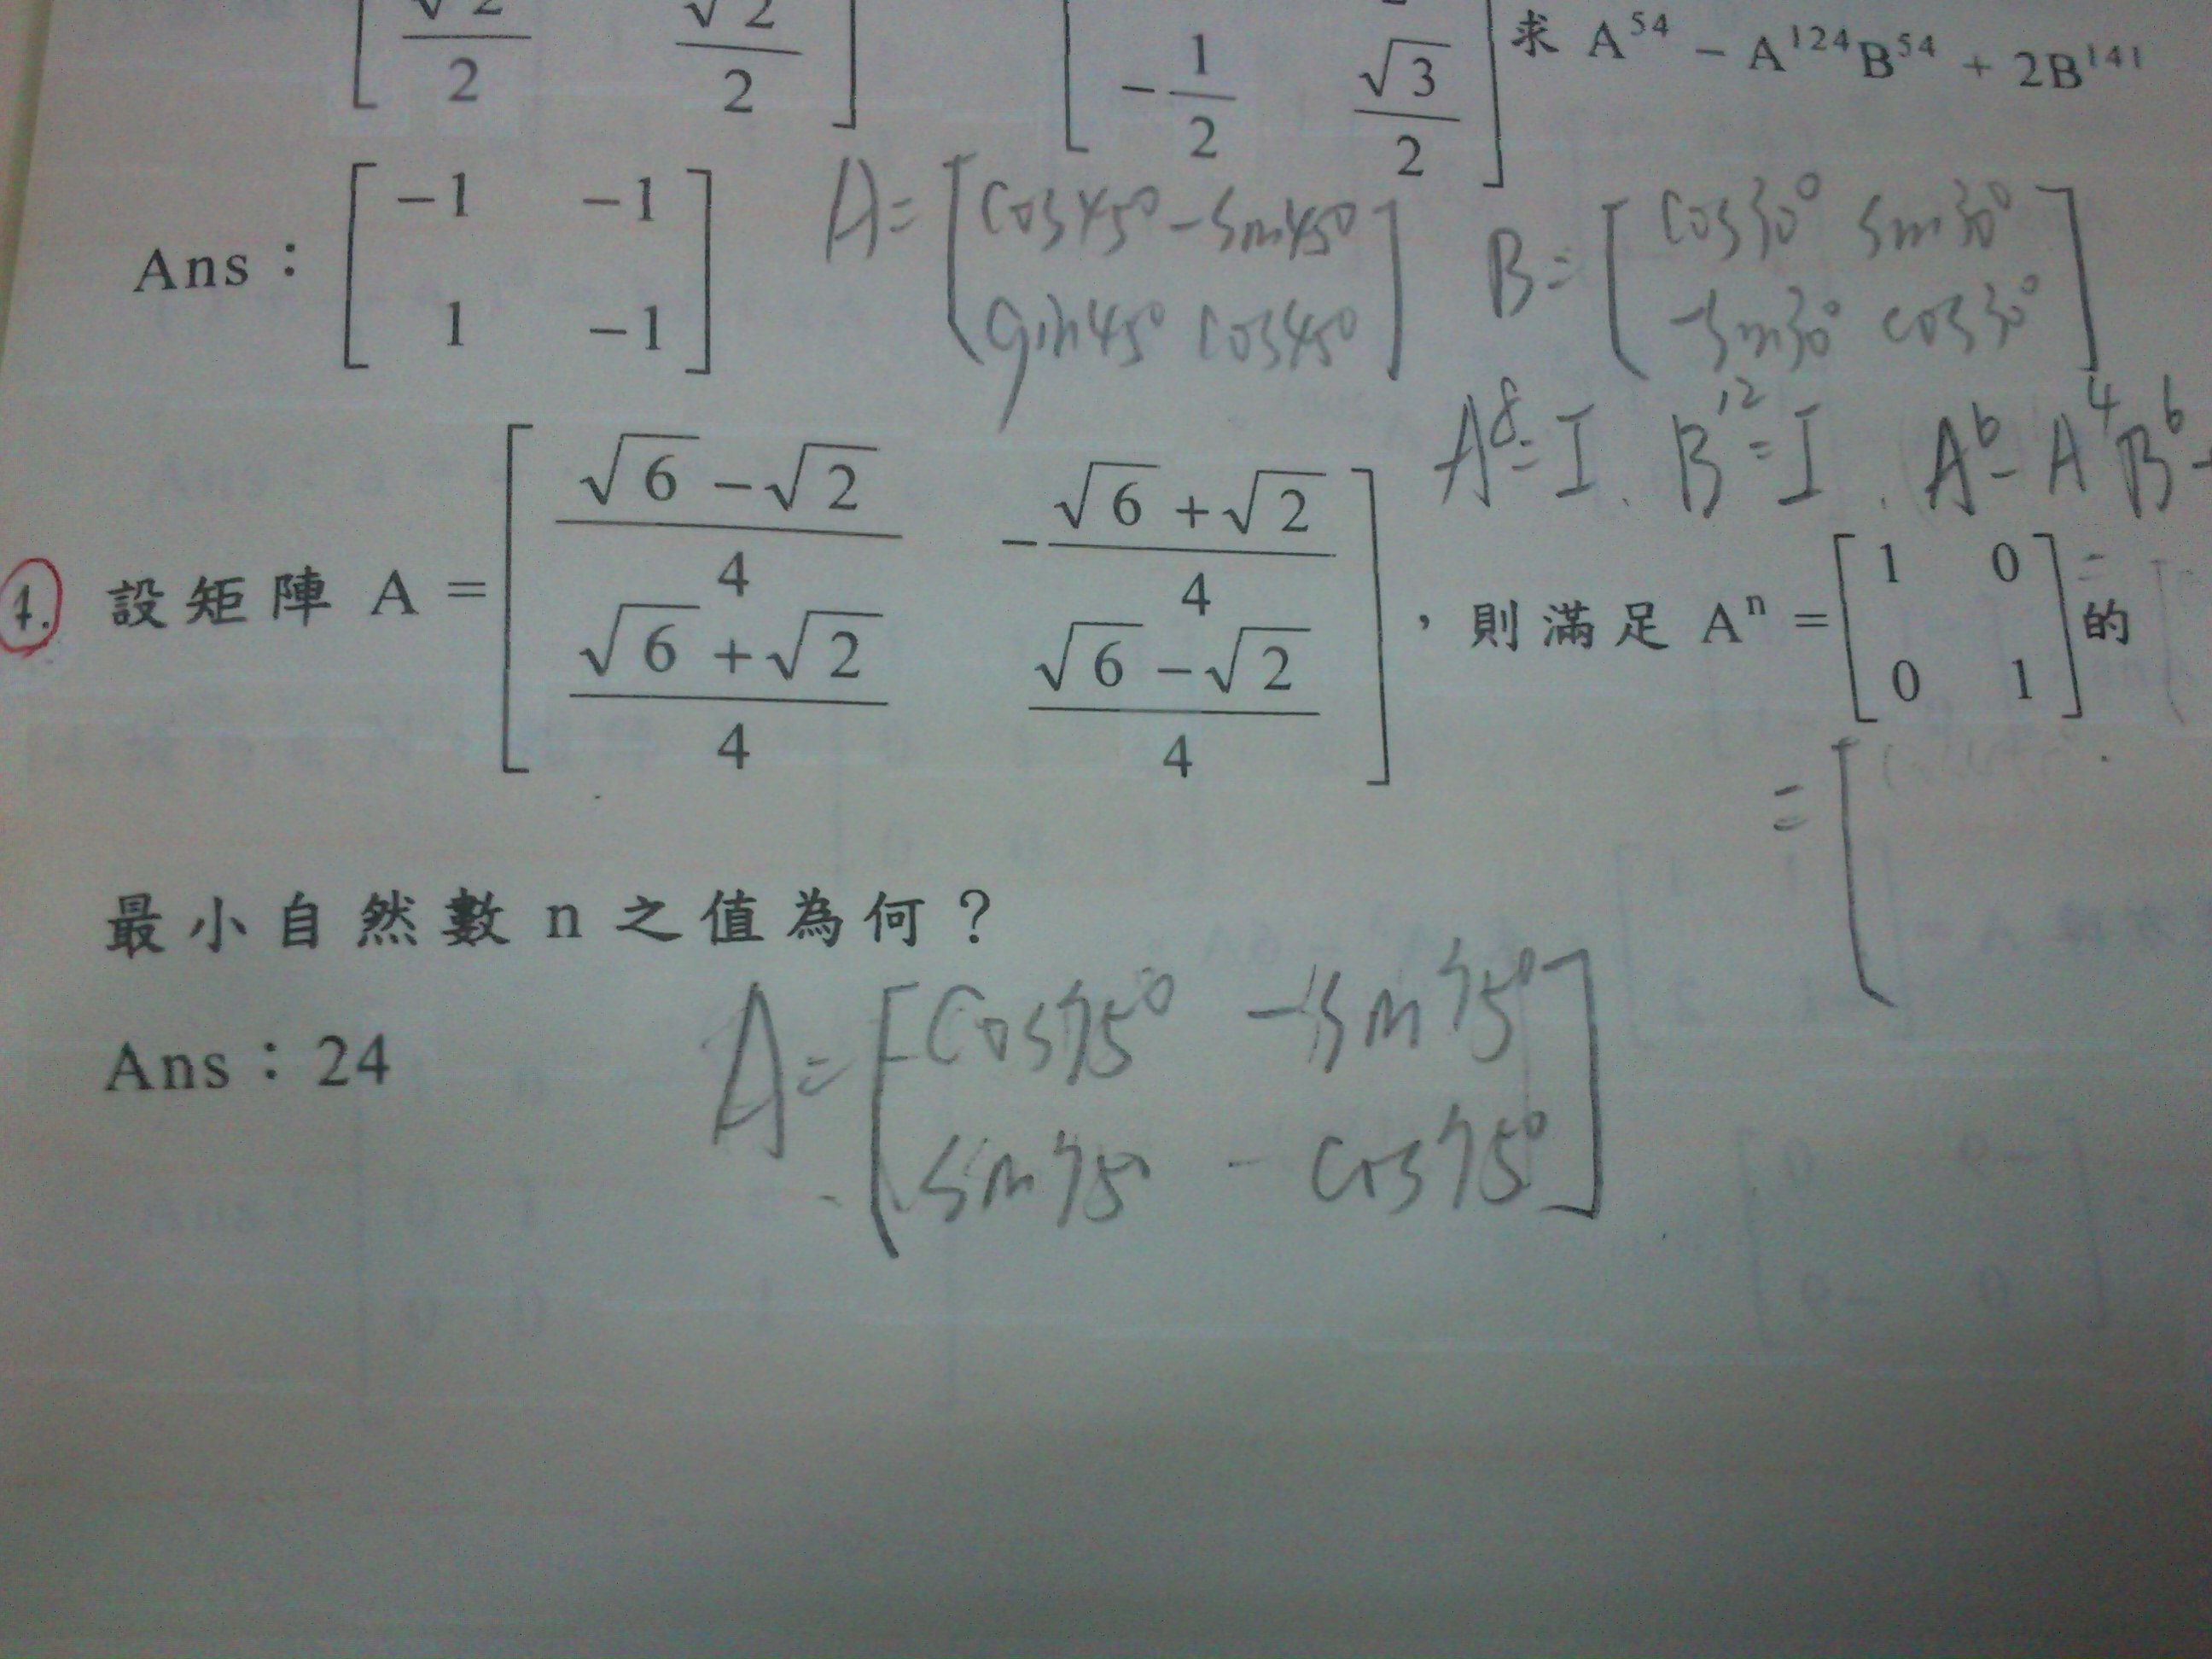 [ √2/2 √2/2 ] [ -1/2 √3/2 ] 求 A^54 - A^124 B^54 + 2B^141
Ans：[ -1 -1 ; 1 -1 ]
A = [ cos45° -sin45° ; sin45° cos45° ]
B = [ cos30° sin30° ; -sin30° cos30° ]
A^8 = I . B^12 = I . A^6 - A^4 B^6 +
4. 設矩陣 A = [ (√6-√2)/4 -(√6+√2)/4 ; (√6+√2)/4 (√6-√2)/4 ]，則滿足 A^n = [ 1 0 ; 0 1 ] 的
= [
最小自然數 n 之值為何？
Ans：24
A = [ cos75° -sin75° ; sin75° - cos75° ]